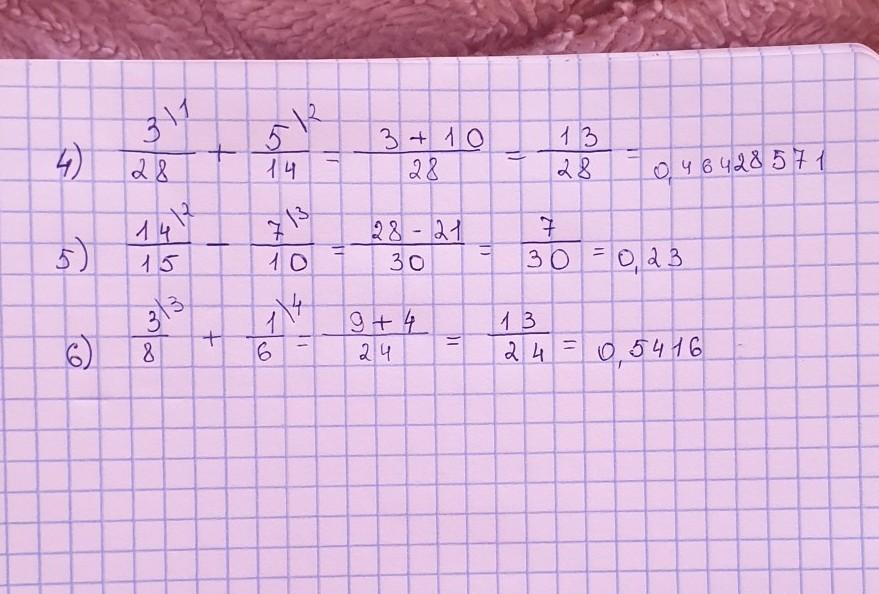 4) 3\1/28 + 5\2/14 = 3 + 10/28 = 13/28 = 0,46428571
5) 14\2/15 - 7\3/10 = 28 - 21/30 = 7/30 = 0,23
6) 3\3/8 + 1\4/6 = 9 + 4/24 = 13/24 = 0,5416